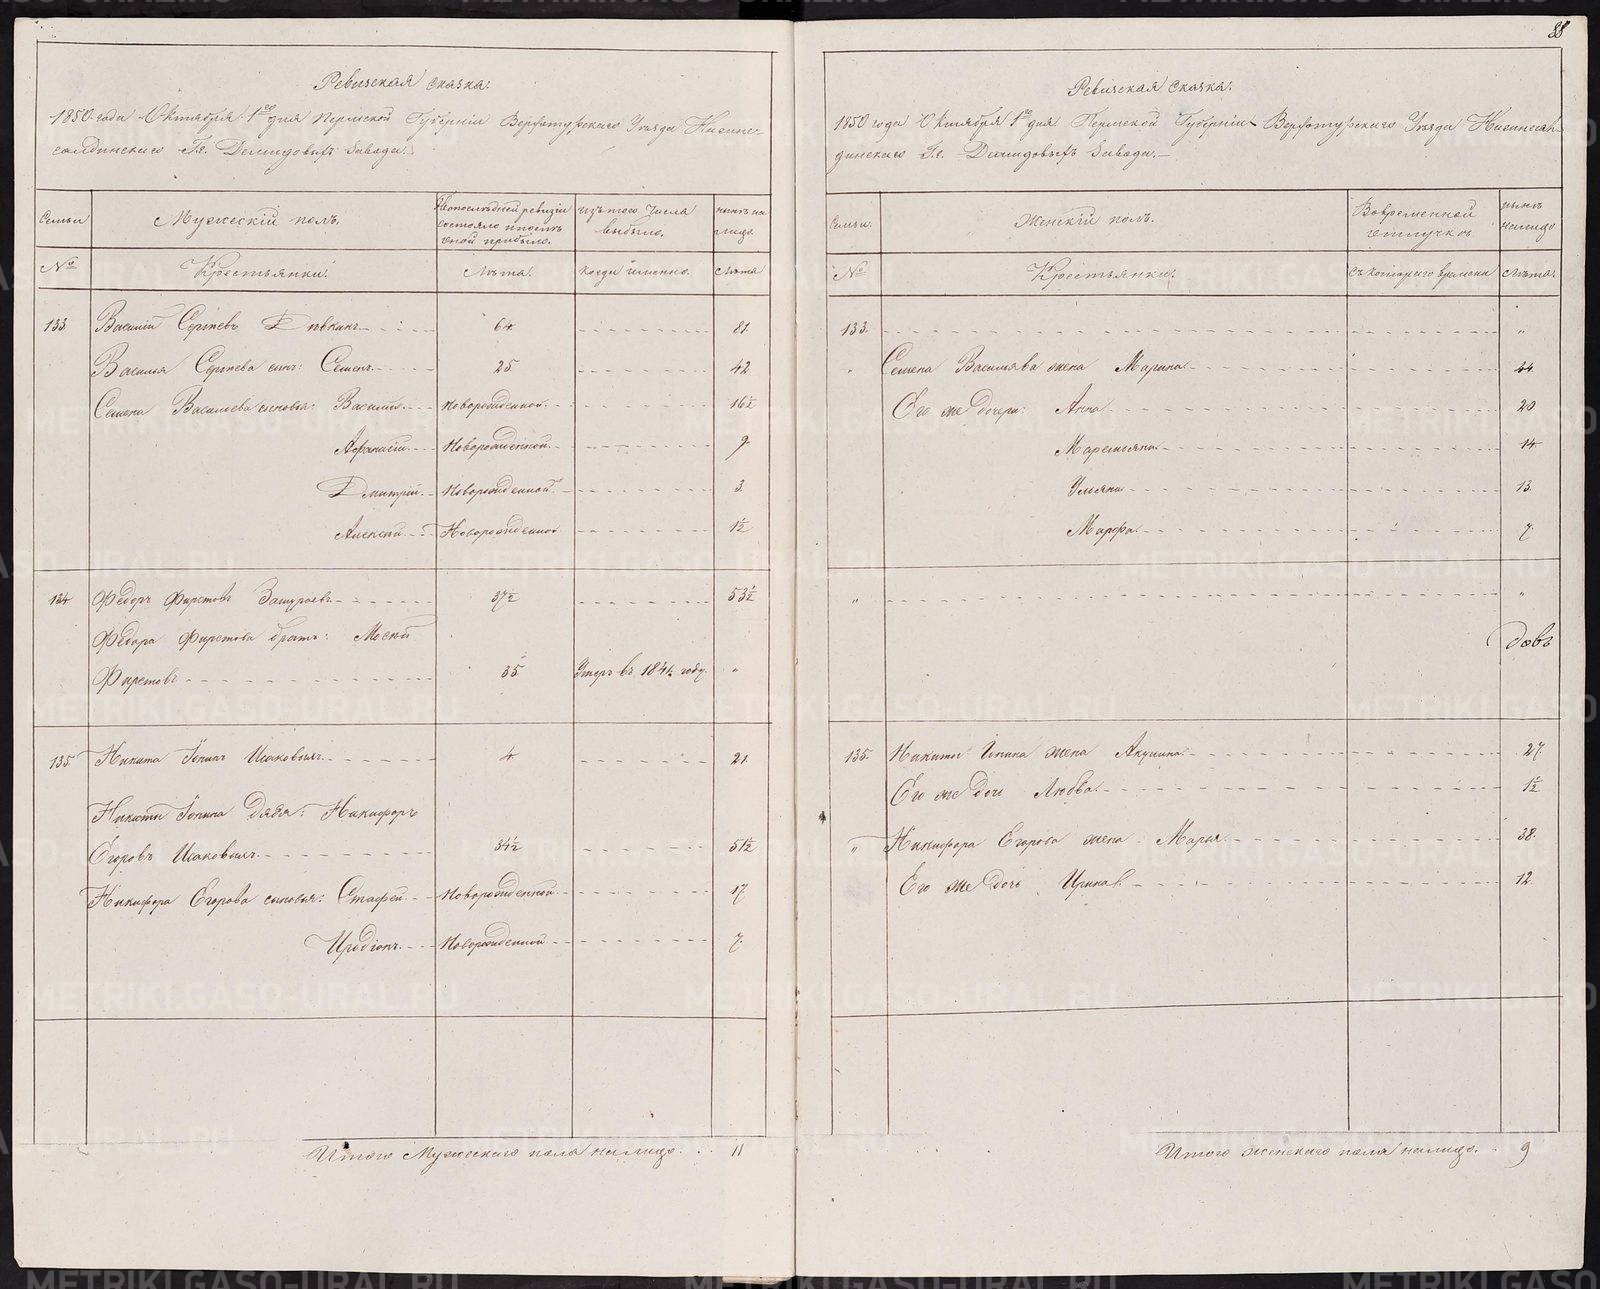 88
Ревизская сказка.
1850 года Октября 1го дня Пермской Губернiи Верхотурскаго Уезда Нижне-
салдинскаго Гг. Демидовыхъ Завода.
Семьи
Мужескiй полъ.
По последней ревизiи состояло и после оной прибыло.
изъ того числа выбыло.
ныне на лицо.
№
Крестьянки.
Лета.
когда именно.
Лета
133 Василiй Сергеевъ 64. 81.
Василья Сергеева сынъ: Семенъ 25 42
Семена Васильева сыновья: Василiй Новорожденной. 16½
Афанасiй Новорожденной. 9.
Дмитрiй Новорожденной 3.
Алексей Новорожденной 1½
134 Федоръ Фирстовъ 37½ 53½
Федора Фирстова братъ: Мосей
Фирстовъ 35 Умеръ въ 1844 году. "
135. Никита Iонинъ Исаковыхъ 4. 21.
Никиты Iонина дядя: Никифоръ
Егоровъ Исаковыхъ 34½ 51½
Никифора Егорова сыновья: Стафей Новорожденной 17
Иродiонъ Новорожденной 7.
Итого Мужескаго пола налицо. 11
Ревизская сказка.
1850 года Октября 1го дня Пермской Губернiи Верхотурскаго Уезда Нижнесал-
динскаго Гг. Демидовыхъ Завода.
Семьи.
Женскiй полъ.
Во временной отлучке
ныне налицо
№
Крестьянки.
съ котораго времени
Лета.
133. "
" Семена Васильява жена Марина 44.
Его же дочери: Анна 20
Маремьяна 14.
Ульяна 13.
Марфа 7.
" "
довъ
135. Никиты Iонина жена Акулина 27.
Его же дочь Любва. 1½
" Никифора Егорова жена Марья 38.
Его же дочь Ирина 12.
Итого женскаго пола налицо. 9
METRIKI.GASO-URAL.RU